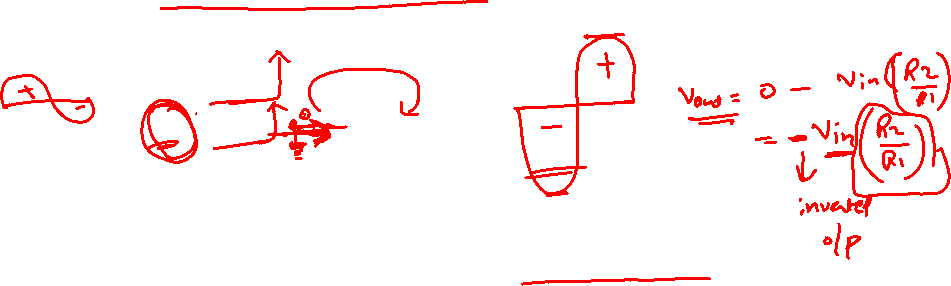 + -
0
+
-
Vout = 0 - Vin (R2/R1)
= - Vin (R2/R1)
inverted
o/p